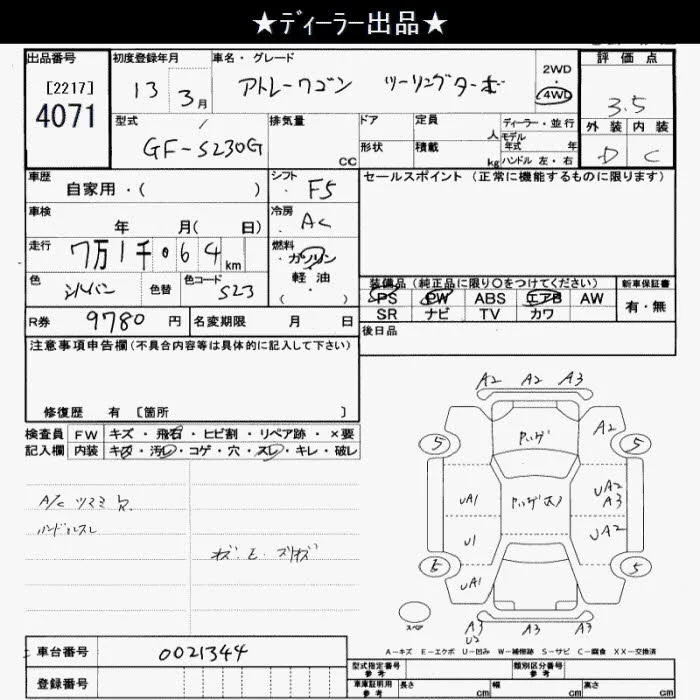 ★ディーラー出品★
出品番号 初度登録年月 車名・グレード 評価点
[2217] 13 3月 アトレーワゴン ツーリングターボ 2WD・4WD 3.5
4071 型式 排気量 ドア 定員 人 ディーラー・並行 外装 内装
GF-S230G cc 形状 積載 kg モデル年式 年 D C
ハンドル 左・右
車歴 シフト セールスポイント (正常に機能するものに限ります)
自家用・( ) F5
車検 冷房
年 月( 日) AC
走行 7万1千064km 燃料
・ガソリン
色 シルバー 色替 色コード S23 軽油
( ・ )
装備品 (純正品に限り〇をつけてください) 新車保証書
PS PW ABS エアB AW 有・無
SR ナビ TV カワ
R券 9780円 名変期限 月 日 後日品
注意事項申告欄(不具合内容等は具体的に記入して下さい)
修復歴 有 [箇所 ]
検査員 FW キズ・飛石・ヒビ割・リペア跡・×要
記入欄 内装 キズ・汚レ・コゲ・穴・スレ・キレ・破レ
A/C ツマミ欠
ハンドルスレ
A2 A2 A3
5 A2 5
UA1 UA2
A3
U1 UA2
5 UA1 5
スペア A3 A3 A3
U2
A-キズ E-エクボ U-凹み W-補修跡 S-サビ C-腐食 XX-交換済
車台番号 0021344
登録番号
型式指定番号 参考 類別区分番号 参考
車庫証明用 参考 長さ cm 幅 cm 高さ cm